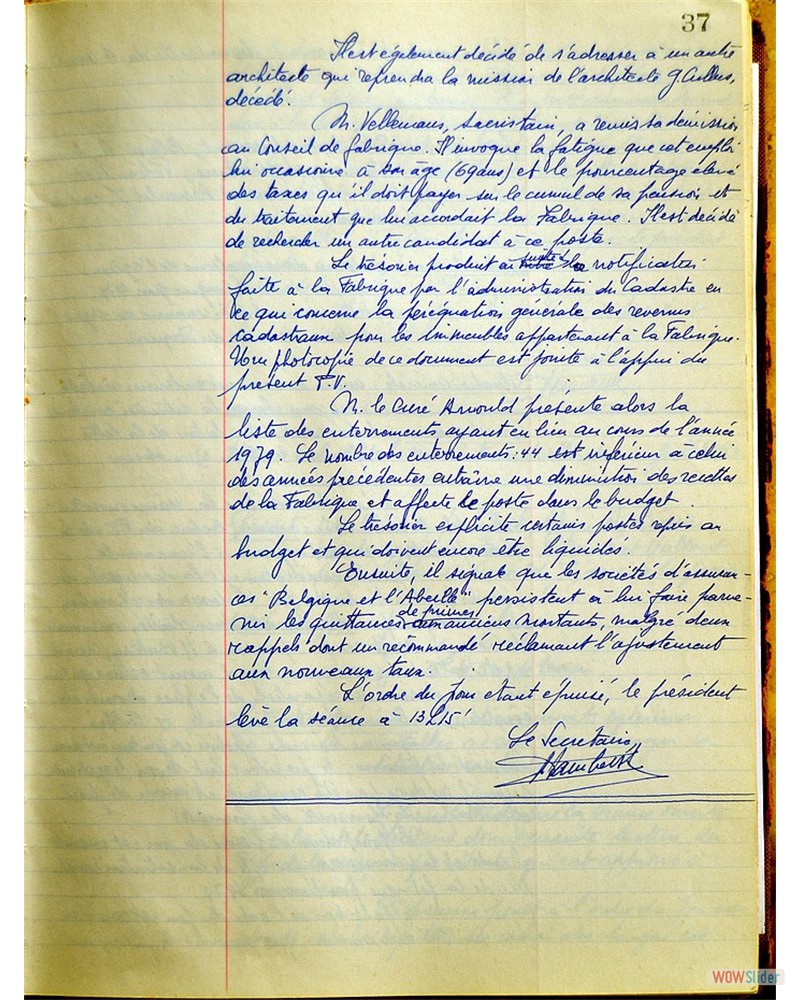 37
Il est également décidé de s'adresser à un autre
architecte qui reprendra la mission de l'architecte
décédé.
M. Vellemans, sacristain, a remis sa démission
au Conseil de fabrique. Il invoque la fatigue que cet emploi
lui occasionne à son âge (69 ans) et le pourcentage élevé
des taxes qu'il doit payer sur le cumul de sa pension et
du traitement que lui accordait la Fabrique. Il est décidé
de rechercher un autre candidat à ce poste.
Le trésorier produit la notification
faite à la Fabrique par l'administration du Cadastre en
ce qui concerne la péréquation générale des revenus
cadastraux pour les immeubles appartenant à la Fabrique.
Une photocopie de ce document est jointe à l'appui du
présent P.V.
M. le Curé Arnould présente alors la
liste des enterrements ayant eu lieu au cours de l'année
1979. Le nombre des enterrements : 44 est inférieur à celui
des années précédentes entraîne une diminution des recettes
de la Fabrique et affecte le poste dans le budget.
Le trésorier explicite certains postes repris au
budget et qui doivent encore être liquidés.
Ensuite, il signale que les sociétés d'assuran-
ces "Belgique et l'Abeille" persistent à lui faire parve-
nir les quittances de primes aux anciens montants, malgré deux
rappels dont un recommandé réclamant l'ajustement
aux nouveaux taux.
L'ordre du jour étant épuisé, le président
lève la séance à 13h15'
Le Secrétaire,
WOWSlider